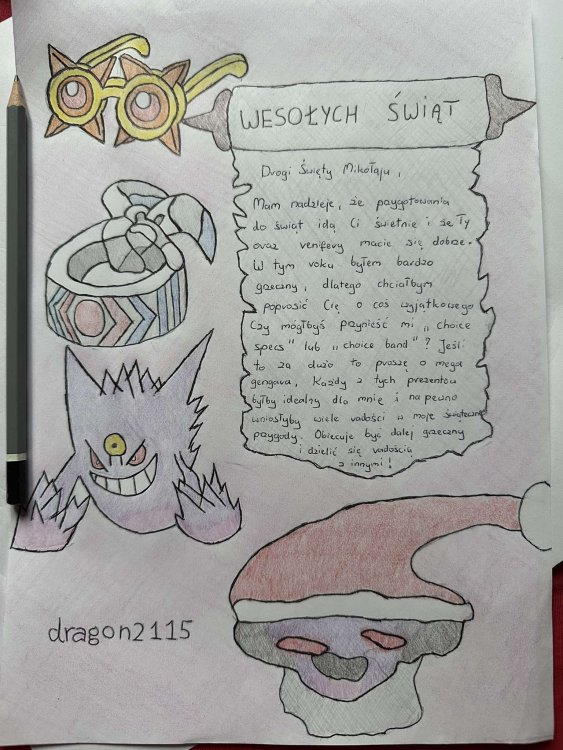 WESOŁYCH ŚWIĄT
Drogi Święty Mikołaju,
Mam nadzieje, że przygotowania
do świąt idą Ci świetnie i że Ty
oraz renifery macie się dobrze.
W tym roku byłem bardzo
grzeczny, dlatego chciałbym
poprosić Cię o coś wyjątkowego
Czy mógłbyś przynieść mi „choice
specs" lub „choice band"? Jeśli
to za dużo to proszę o mega
gengara, Każdy z tych prezentów
byłby idealny dla mnie i na pewno
wniosłyby wiele radości w moje świąteczne
przygody. Obiecuje być dalej grzeczny
i dzielić się radością
z innymi!
dragon2115